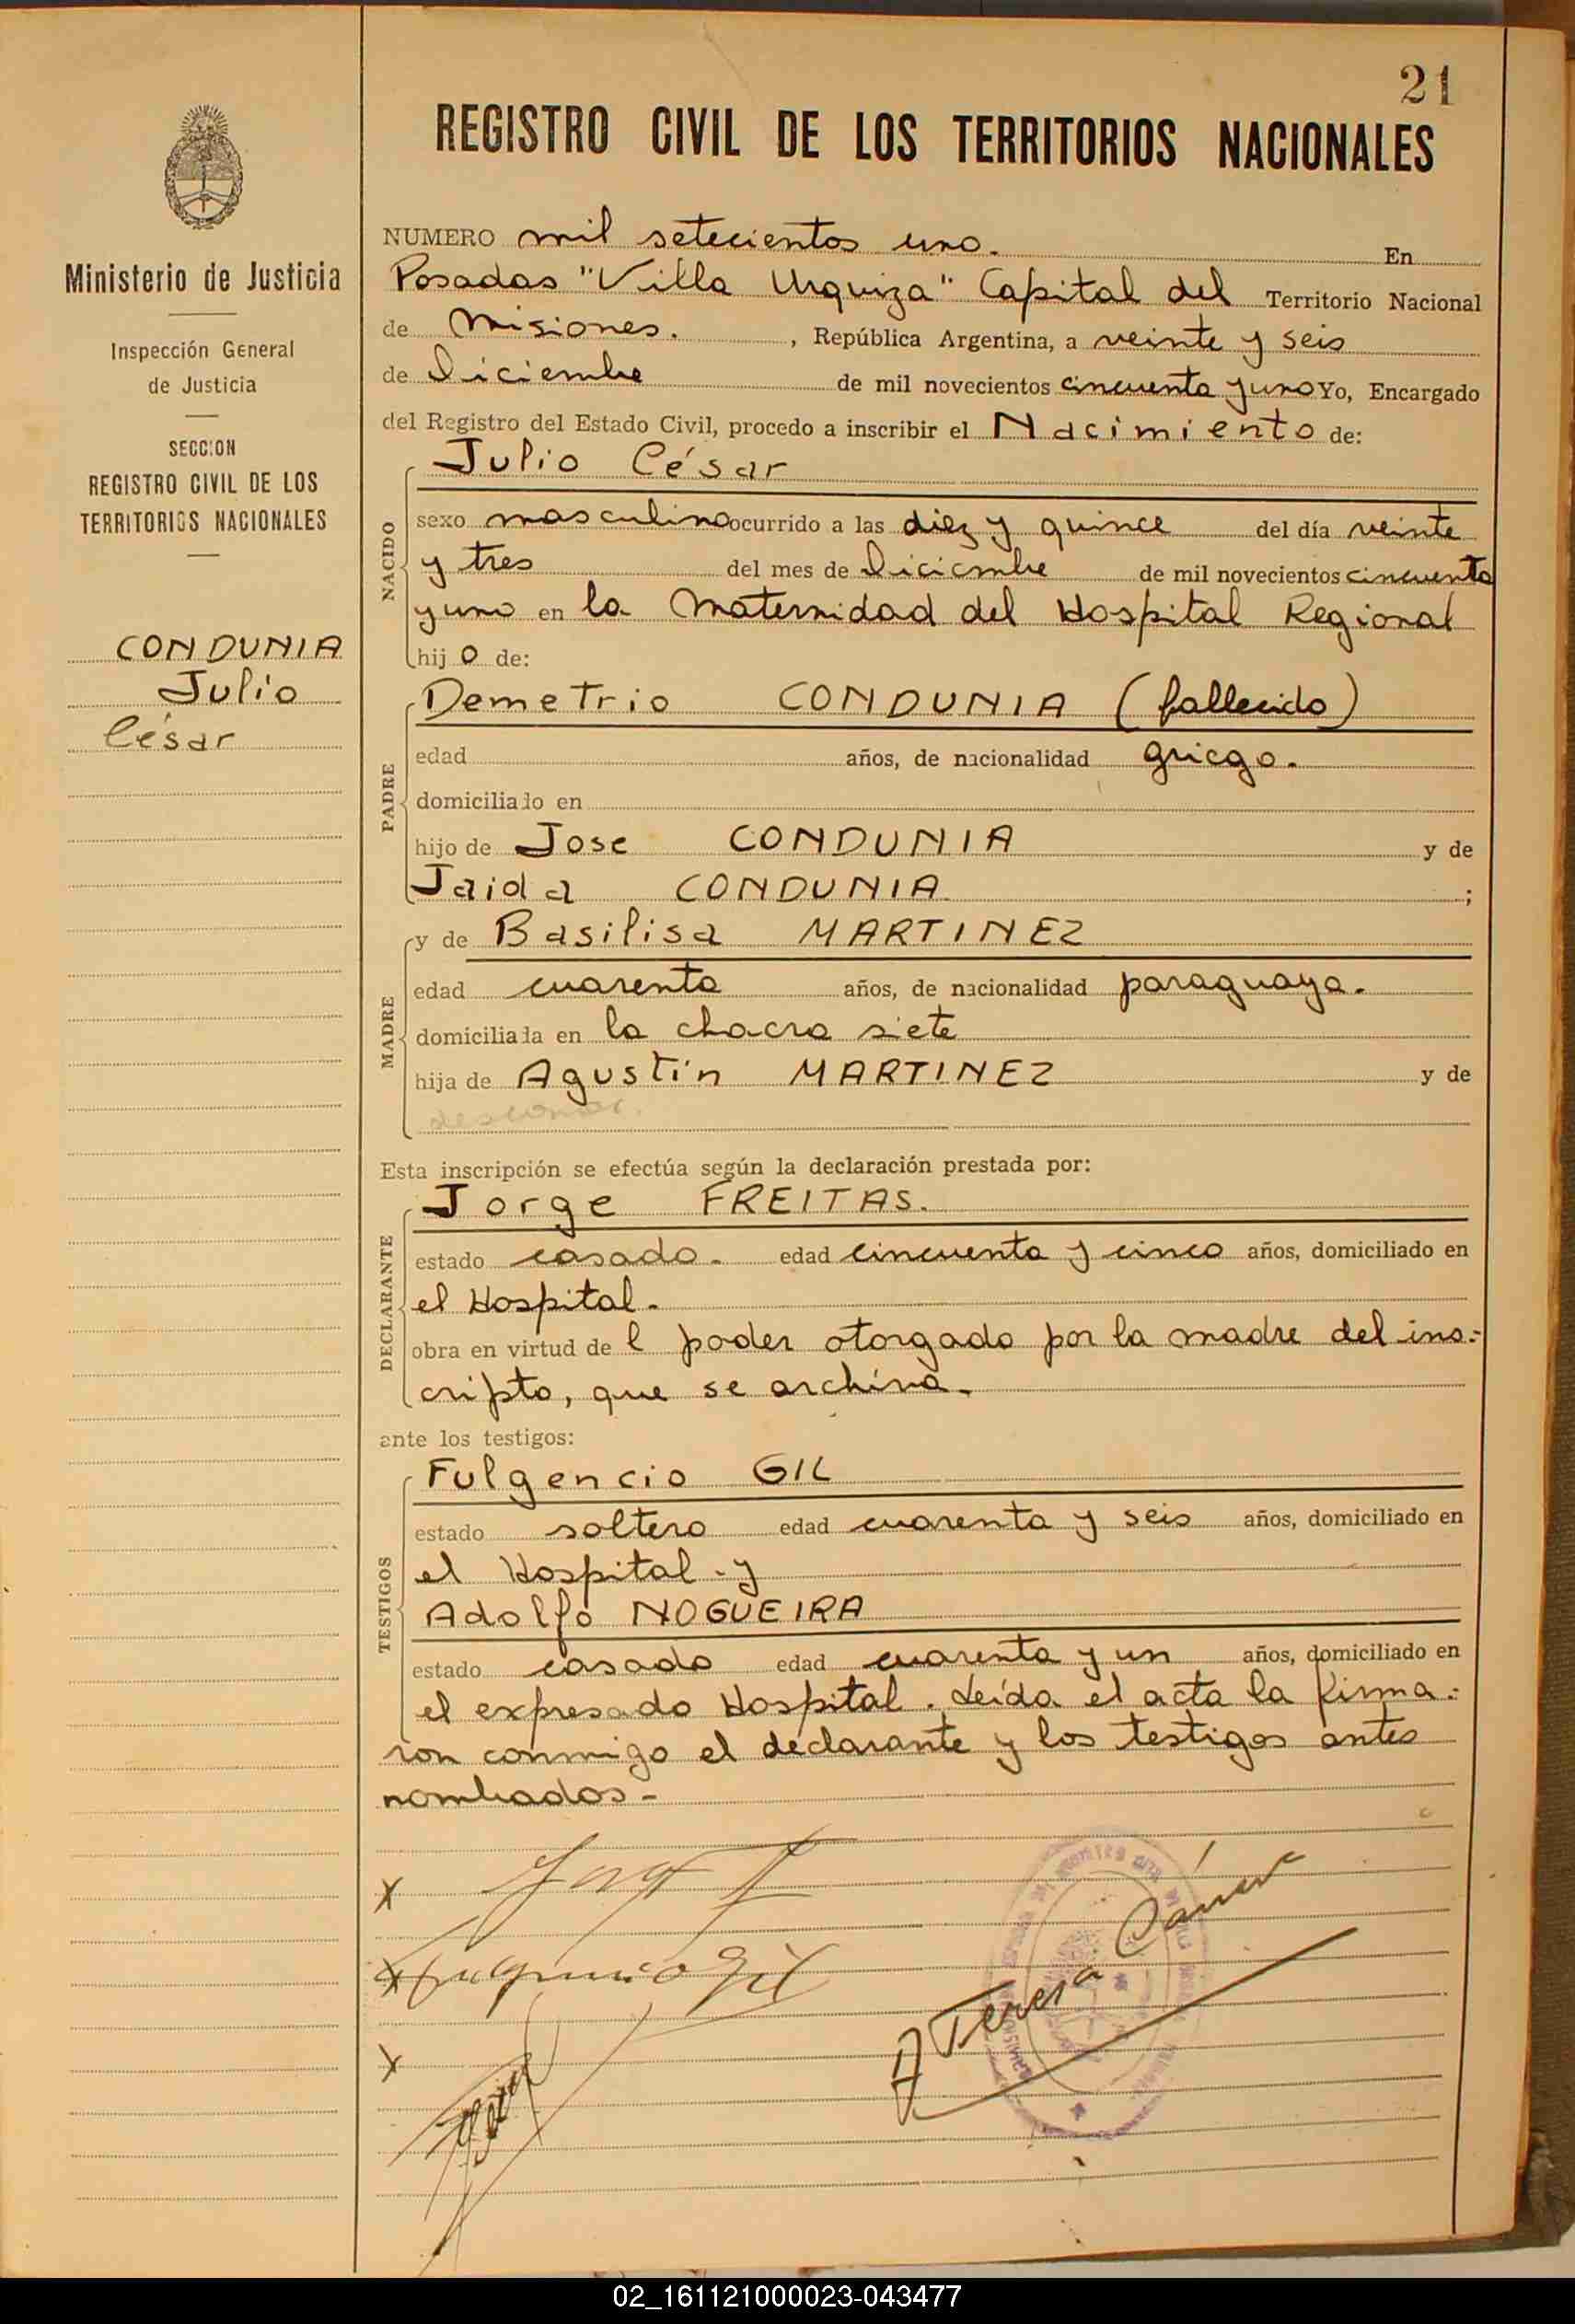 21
REGISTRO CIVIL DE LOS TERRITORIOS NACIONALES
Ministerio de Justicia
Inspección General
de Justicia
SECCION
REGISTRO CIVIL DE LOS
TERRITORIOS NACIONALES
CONDUNIA
Julio
César
NUMERO mil setecientos uno. En
Posadas "Villa Urquiza" Capital del Territorio Nacional
de Misiones. , República Argentina, a veinte y seis
de Diciembre de mil novecientos cincuenta y uno Yo, Encargado
del Registro del Estado Civil, procedo a inscribir el Nacimiento de:
NACIDO
Julio César
sexo masculino ocurrido a las diez y quince del día veinte
y tres del mes de Diciembre de mil novecientos cincuenta
y uno en la Maternidad del Hospital Regional
hij o de:
PADRE
Demetrio CONDUNIA (fallecido)
edad años, de nacionalidad griego.
domiciliado en
hijo de Jose CONDUNIA y de
Jaida CONDUNIA ;
MADRE
y de Basilisa MARTINEZ
edad cuarenta años, de nacionalidad paraguaya.
domiciliada en la chacra siete
hija de Agustín MARTINEZ y de
Esta inscripción se efectúa según la declaración prestada por:
DECLARANTE
Jorge FREITAS.
estado casado. edad cincuenta y cinco años, domiciliado en
el Hospital.
obra en virtud de l poder otorgado por la madre del ins=
cripto, que se archiva.
ante los testigos:
TESTIGOS
Fulgencio GIL
estado soltero edad cuarenta y seis años, domiciliado en
el Hospital . y
Adolfo NOGUEIRA
estado casado edad cuarenta y un años, domiciliado en
el expresado Hospital . Leída el acta la firma=
ron conmigo el declarante y los testigos antes
nombrados -
X
X Fulgencio Gil
X
A Teresa
02_161121000023-043477